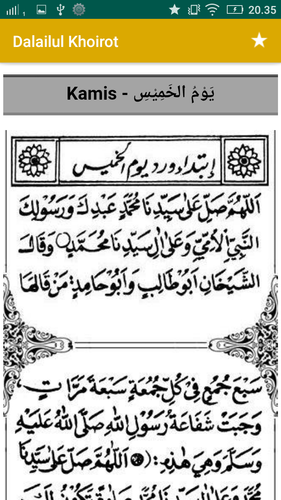 20.35
Dalailul Khoirot
Kamis - يَوْمُ الخَمِيْسِ
ابتداء ورد يوم الخميس
اَللّٰهُمَّ صَلِّ عَلٰى سَيِّدِنَا مُحَمَّدٍ عَبْدِكَ وَرَسُوْلِكَ
النَّبِيِّ الْاُمِّيِّ وَعَلٰى اٰلِ سَيِّدِنَا مُحَمَّدٍ وَقَالَ
الشَّيْخَانِ اَبُوْ طَالِبٍ وَاَبُوْ حَامِدٍ مَنْ قَالَهَا
سَبْعَ جُمَعٍ فِيْ كُلِّ جُمُعَةٍ سَبْعَةَ مَرَّاتٍ
وَجَبَتْ شَفَاعَةُ رَسُوْلِ اللّٰهِ صَلَّى اللّٰهُ عَلَيْهِ
وَسَلَّمَ وَهِيَ هٰذِهِ: اَللّٰهُمَّ صَلِّ عَلٰى سَيِّدِنَا